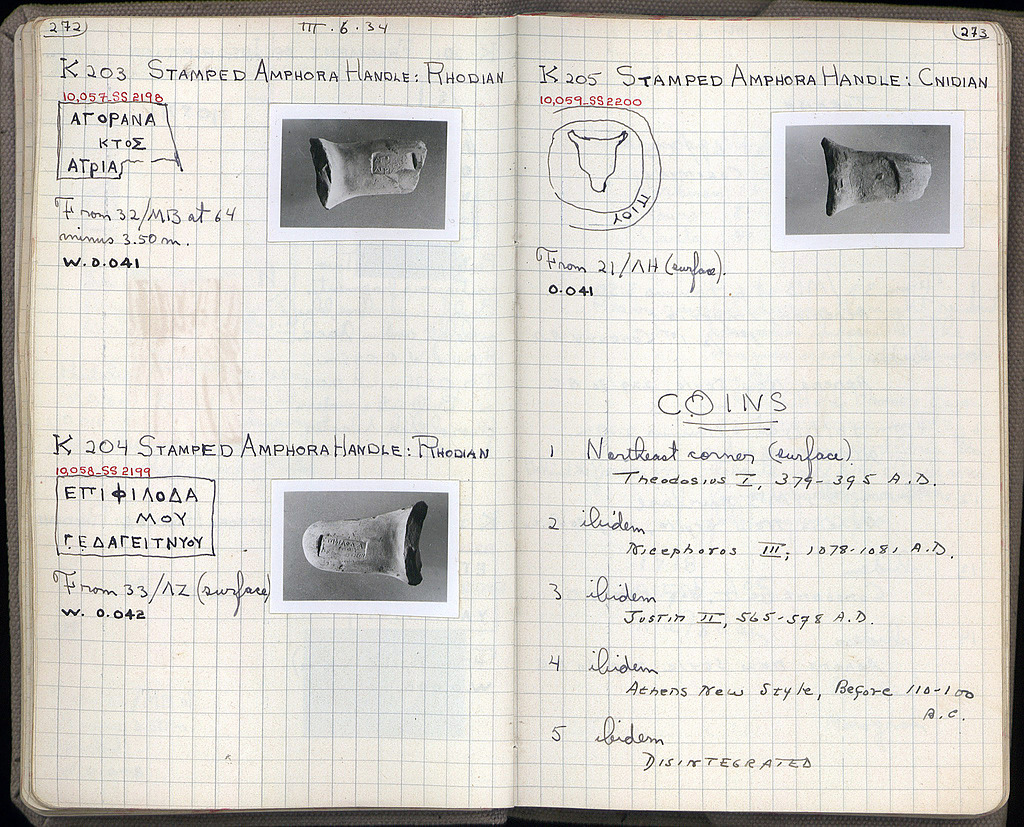 272
III.6.34
K 203 STAMPED AMPHORA HANDLE: RHODIAN
10,057_SS 2198
ΑΓΟΡΑΝΑ
ΚΤΟΣ
ΑΓΡΙΑ
From 32/ΜΒ at 64
minus 3.50 m.
W. 0.041
K 204 STAMPED AMPHORA HANDLE: RHODIAN
10,058_SS 2199
ΕΠΙΦΙΛΟΔΑ
ΜΟΥ
ΠΕΔΑΓΕΙΤΝΥΟΥ
From 33/ΛΖ (surface)
W. 0.042
273
K 205 STAMPED AMPHORA HANDLE: CNIDIAN
10,059_SS 2200
ΠΙΟΥ
From 21/ΛΗ (surface).
0.041
COINS
1 Northeast corner (surface).
Theodosius I, 379-395 A.D.
2 ibidem
Nicephoros III, 1078-1081 A.D.
3 ibidem
Justin II, 565-578 A.D.
4 ibidem
Athens New Style, Before 110-100
B.C.
5 ibidem
DISINTEGRATED